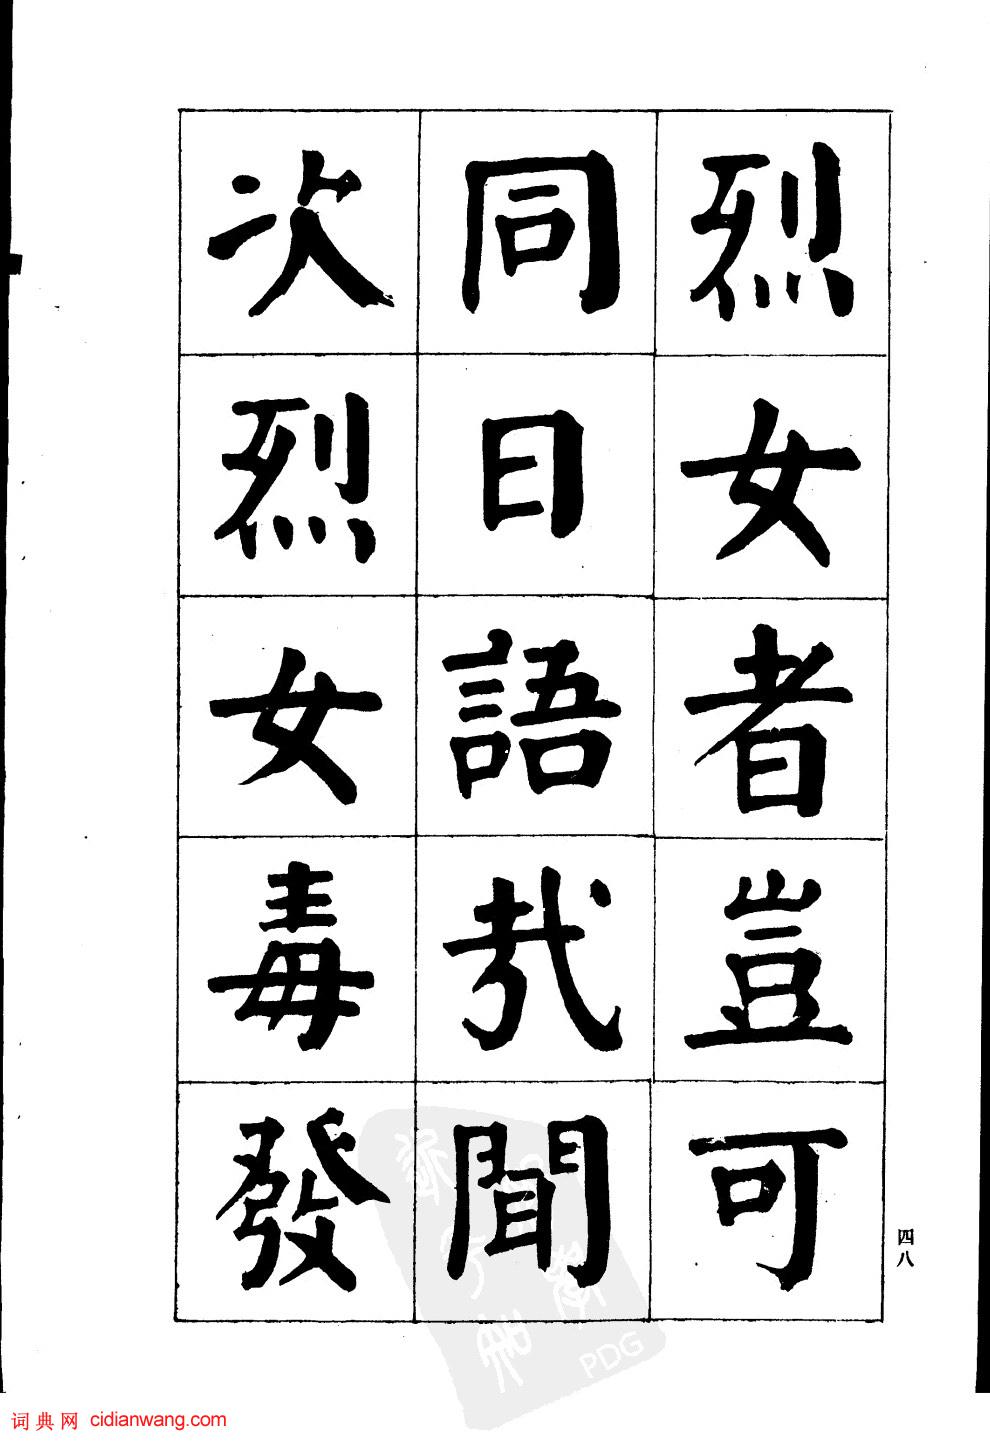 烈女者豈可
同日語哉聞
次烈女毒發
四八
PDG
词典网 cidianwang.com